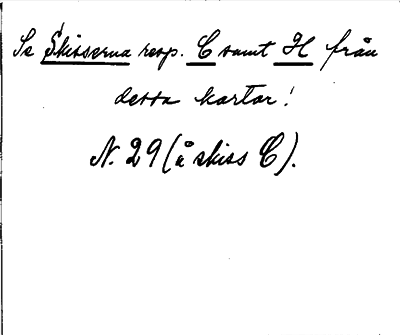 Se Skisserna resp. C samt H från
dessa kartor!
N. 29 (å skiss C).